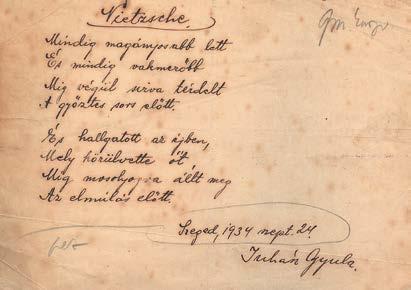 Nietzsche.
Mindig magányosabb lett
És mindig vakmerőbb
Míg végül sírva térdelt
A győztes sors előtt.
És hallgatott az éjben,
Mely körülvette őt,
Míg mosolyogva állt meg
Az elmulás előtt.
Szeged, 1934 szept. 24
Juhász Gyula.